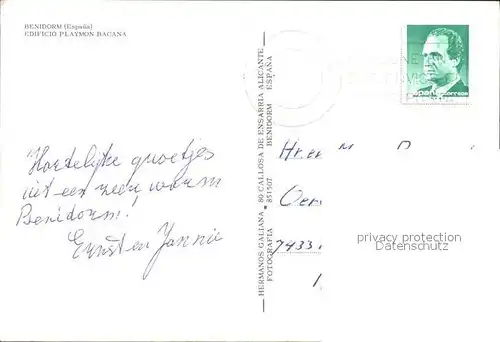 BENIDORM (España)
EDIFICIO PLAYMON BACANA
Hartelijke groetjes
uit een zeer warm
Benidorm!
Ernst en Jannie
HERMANOS GALIANA - 89 CALLOSA DE ENSARRIA ALICANTE
FOTOGRAFIA * 851507 BENIDORM ESPAÑA
España correos
Hr. en M
7433
privacy protection
Datenschutz